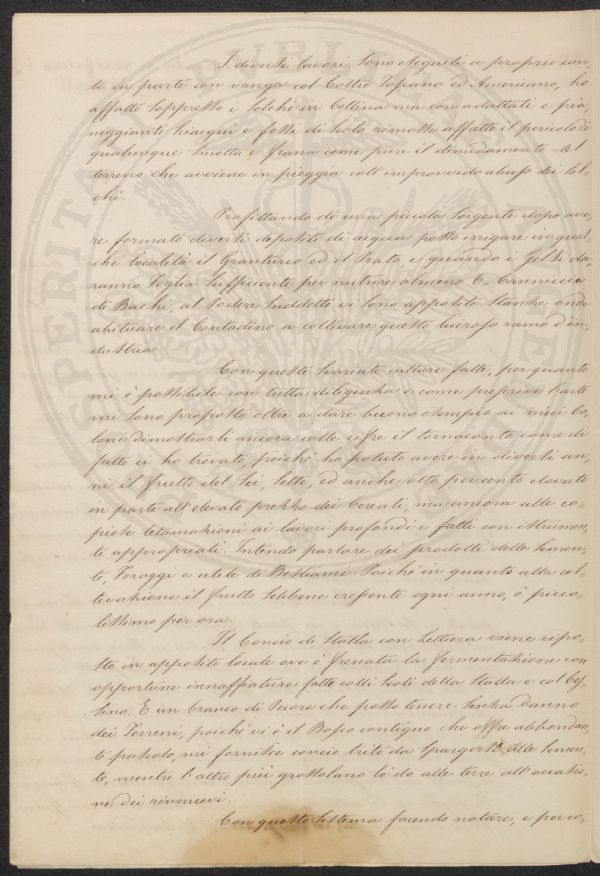 I diversi lavori sono eseguiti a proprio con,
to in parte con vanga col Coltro Toscano ed Americano, ho
affatto soppresso i solchi in Collina ma con adattati e pia,
neggianti sciaqui e fossi di scolo rimosso affatto il pericolo di
qualunque smotta e frana come pure il dimidamento del
terreno che avviene in pioggia coll'improvvido abuso dei sol,
chi.
Profittando di una piccola sorgente dopo ave,
re formato diversi depositi di acqua posso irrigare in qual,
che località il Granturco ed il Prato, e quando i Gelsi da,
ranno Foglia sufficiente per nutrire almeno 6. Cannicci
di Bachi, al Podere suddetto vi sono apposite stanze onde
abituare il Contadino a coltivare questo lucroso ramo d'in,
dustria
Con queste svariate culture fatte, per quanto
mi è possibile con tutta diligenza e come prescrive l'arte
mi sono proposto oltre a dare buono esempio ai miei Co,
loni dimostrarli ancora colle cifre il tornaconto come di
fatto ci ho trovato, poiché ho potuto avere in diversi an,
ni il frutto del Sei, Sette, ed anche otto percento dovuto
in parte all'elevato prezzo dei Cereali, ma ancora alle co,
piose letamazioni ai lavori profondi e fatti con istrumen,
ti appropriati. Intendo parlare dei prodotti delle semen,
te, Foraggi e utile di Bestiami. Poiché in quanto alla col,
tivazione il frutto sebbene crescente ogni anno, è picco,
lissimo per ora.
Il Concio di Stalla con Lettiera viene ripo,
sto in apposito locale ove è frenata la fermentazione con
opportune innaffiature fatte colli scoli della Stalla e col Ces,
sino. E un branco di Pecore che posso tenere senza danno
dei Terreni, poiché vi è il Bosco contiguo che offre abbondan,
te pascolo, mi fornisce concio trito da spargersi alle semen,
te, mentre l'altro più grossolano lo do alle terre all'occasio,
ne dei rinnuovi.
Con questo sistema facendo notare, e per co,